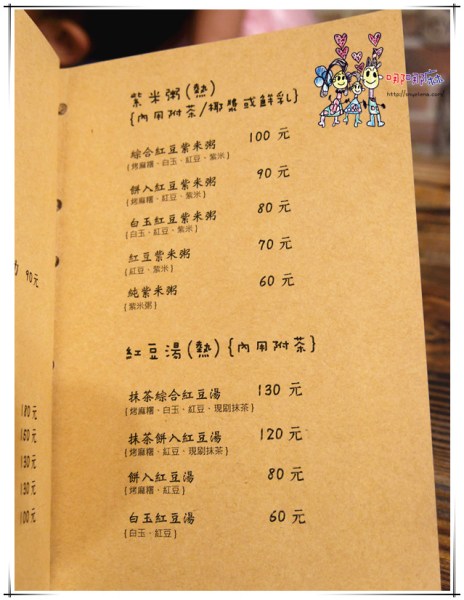 紫米粥(熱)
{內用附茶/椰漿或鮮乳}
綜合紅豆紫米粥 100 元
{烤麻糬、白玉、紅豆、紫米}
餅入紅豆紫米粥 90 元
{烤麻糬、紅豆、紫米}
白玉紅豆紫米粥 80 元
{白玉、紅豆、紫米}
紅豆紫米粥 70 元
{紅豆、紫米}
純紫米粥 60 元
{紫米粥}
紅豆湯(熱){內用附茶}
抹茶綜合紅豆湯 130 元
{烤麻糬、白玉、紅豆、現刷抹茶}
抹茶餅入紅豆湯 120 元
{烤麻糬、紅豆、現刷抹茶}
餅入紅豆湯 80 元
{烤麻糬、紅豆}
白玉紅豆湯 60 元
{白玉、紅豆}
90元
180元
160元
130元
130元
100元